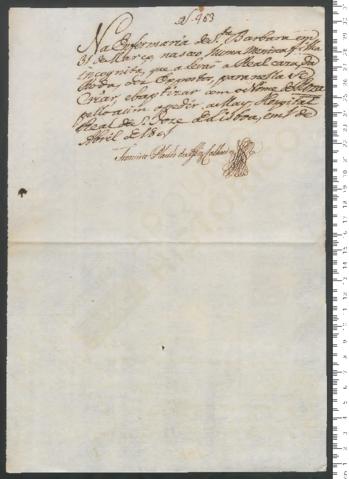 N. 963
Na Enfermaria de S.ta Barbara em
31 de Março nasceu huma Menina filha
incognita, que a levão a Real caza da
Roda, dos Expostos, para nella se
Criar, e baptizar com o Nome de
pella asim o pedir a May, Hospital
Real de S. Joze de Lisboa, em 1 de
Abril de 180
Francisco